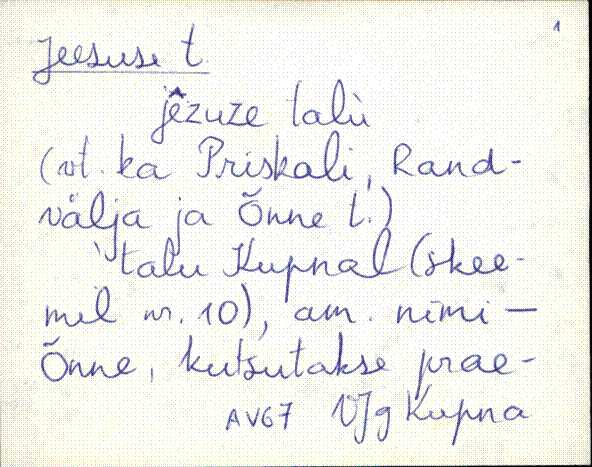 1
Jeesuse t.
jêzuze talù
(vt. ka Priskali, Rand-
välja ja Õnne t.)
`talu Kupnal (skee-
mil nr. 10), am. nimi —
Õnne, kutsutakse prae-
AV67 VJg Kupna